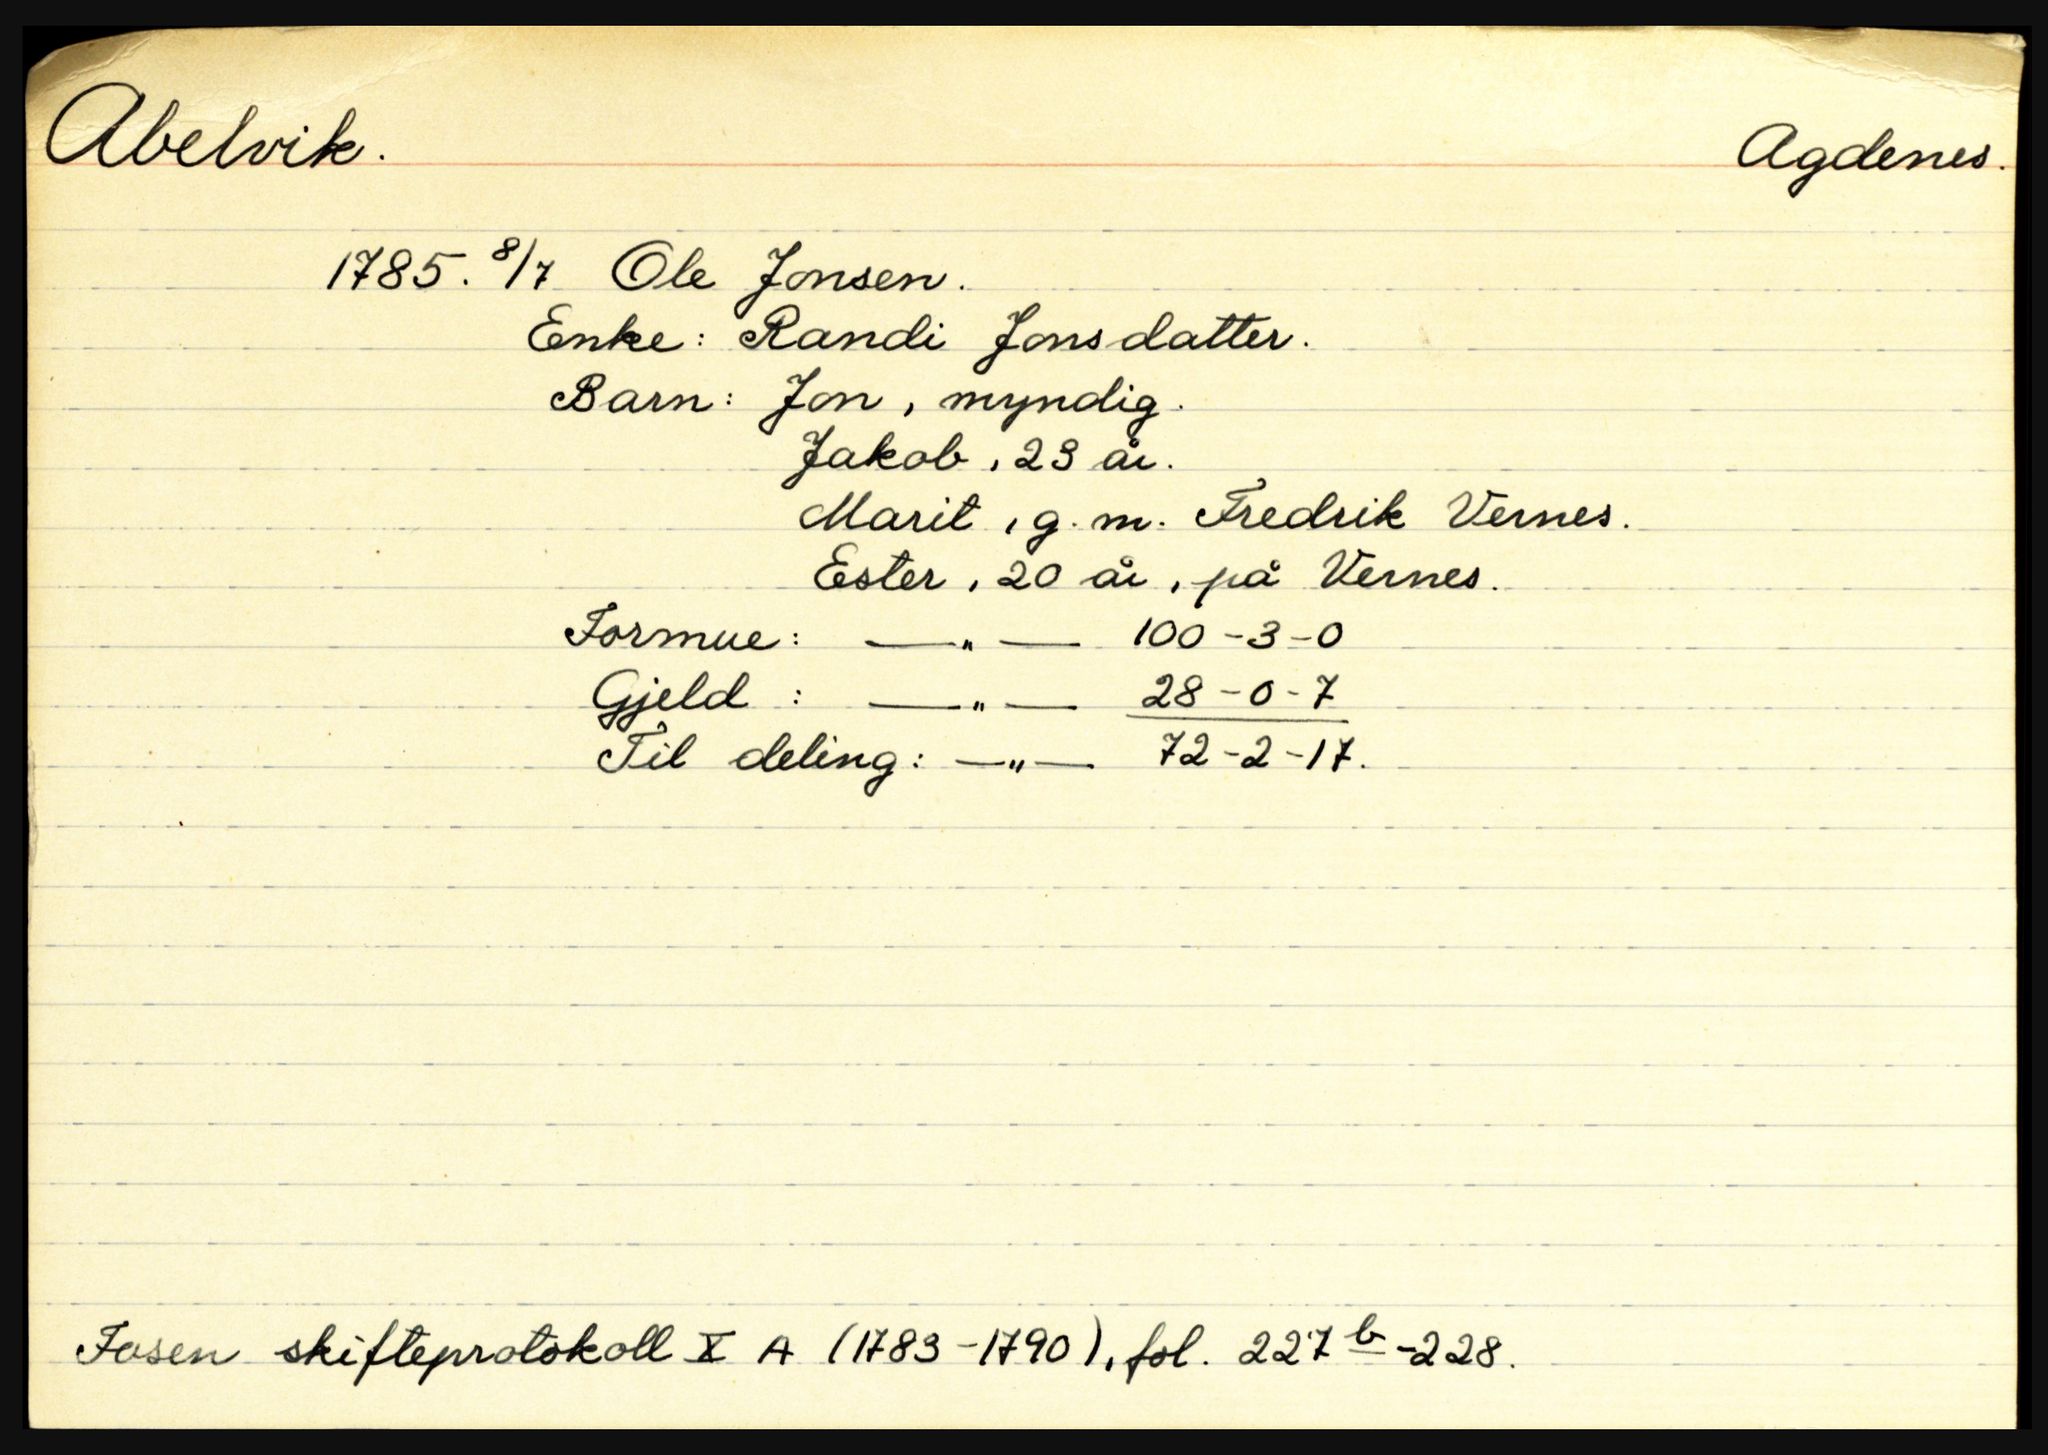 Abelvik. Agdenes.
1785. 8/7 Ole Jonsen.
Enke: Randi Jonsdatter.
Barn: Jon, myndig.
Jakob, 23 år.
Marit, g. m. Fredrik Vernes.
Ester, 20 år, på Vernes.
Formue: —„— 100-3-0
Gjeld : —„— 28-0-7
Til deling: —„— 72-2-17.
Fosen skifteprotokoll X A (1783-1790), fol. 227b-228.